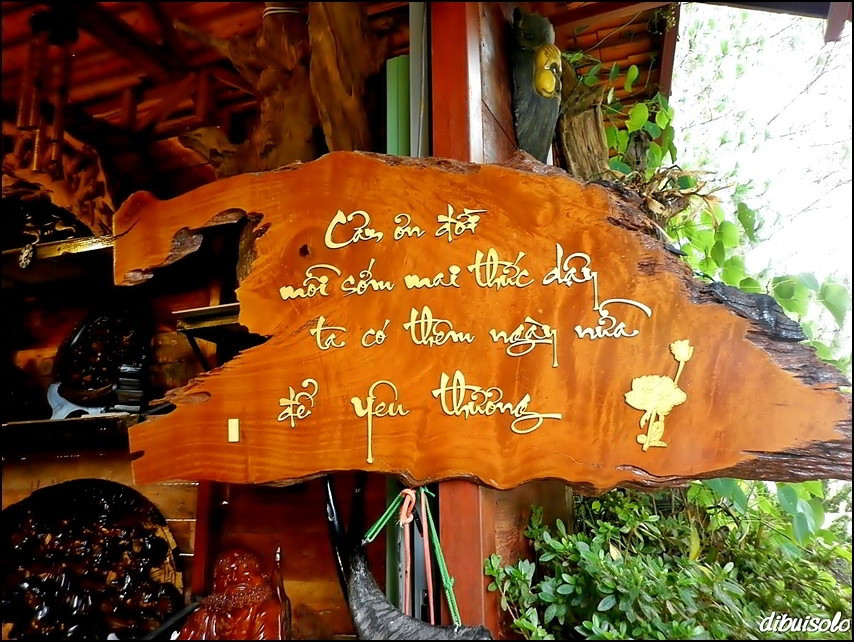 Cảm ơn đời
mỗi sớm mai thức dậy
ta có thêm ngày nữa
để yêu thương
dibuisolo